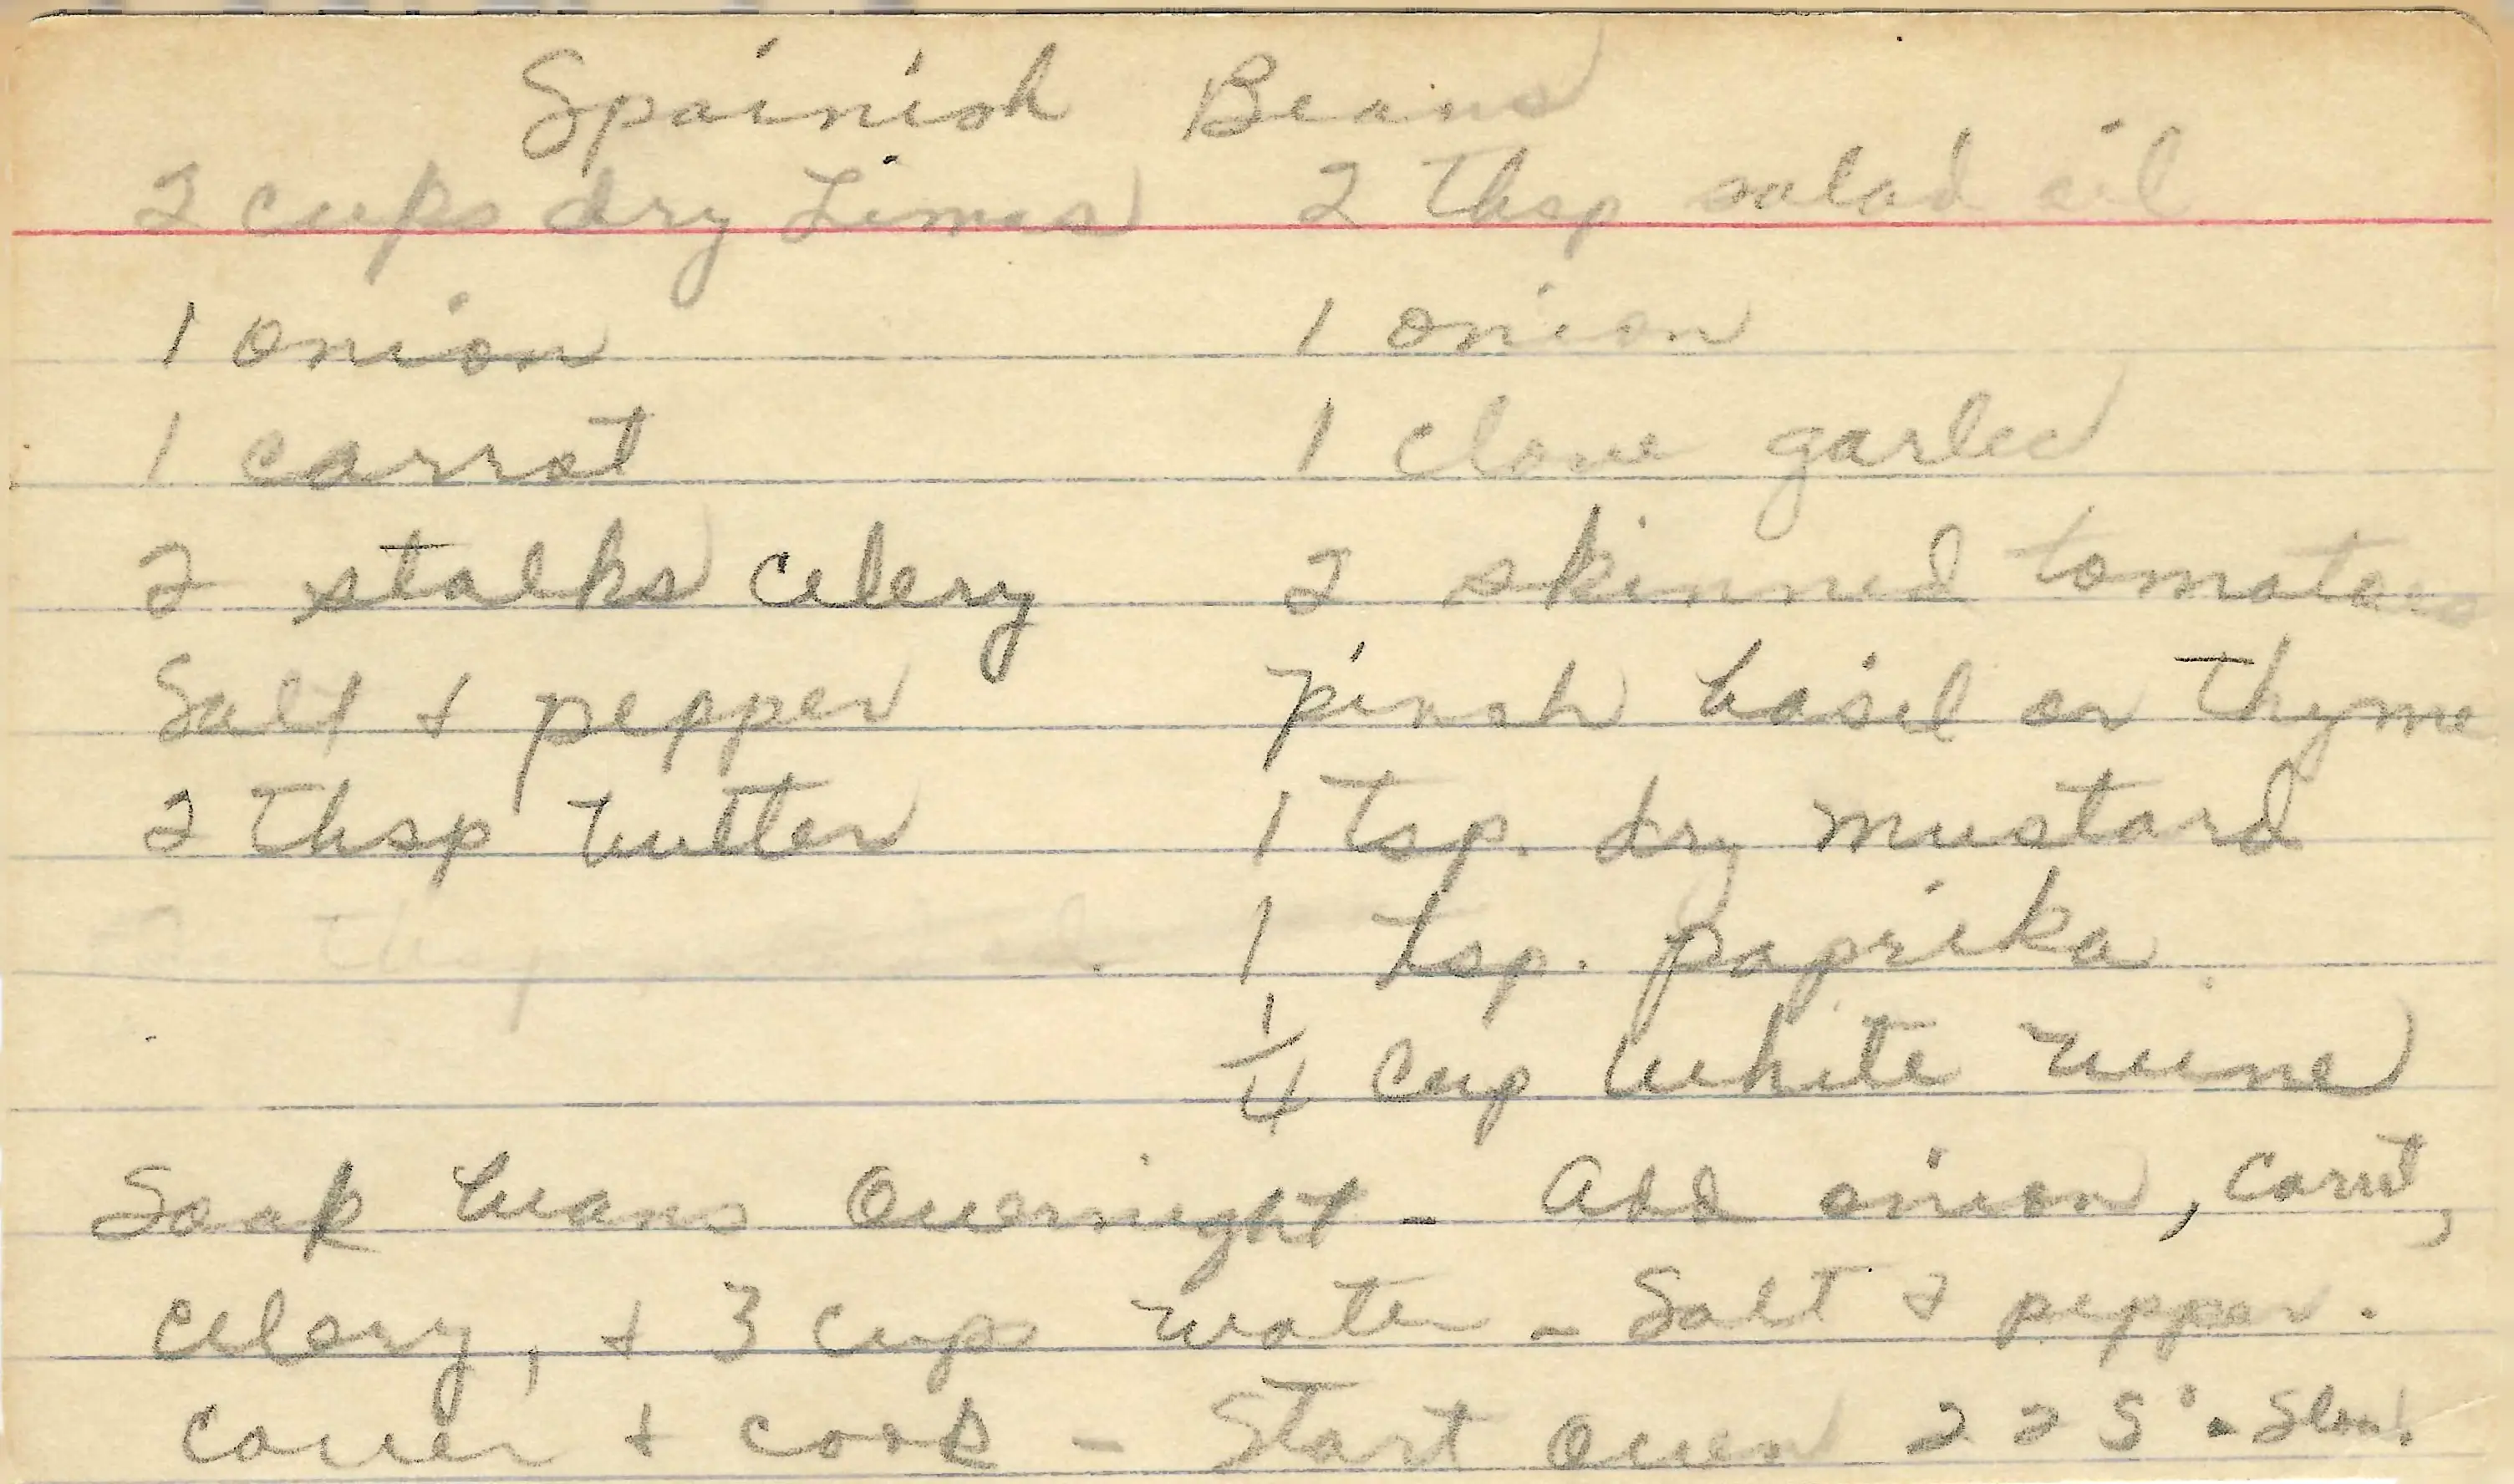 Spainish Beans
2 cups dry Limas 2 tbsp salad oil
1 onion 1 onion
1 carrot 1 clove garlic
2 stalks celery 2 skinned tomatoes
Salt + pepper pinch basil or thyme
2 tbsp butter 1 tsp. dry mustard
1 tsp. paprika
1/4 cup white wine
Soak beans overnight - Add onion, carrot,
celery, + 3 cups water - Salt + pepper.
cover + cook - Start oven 225° - Slow.